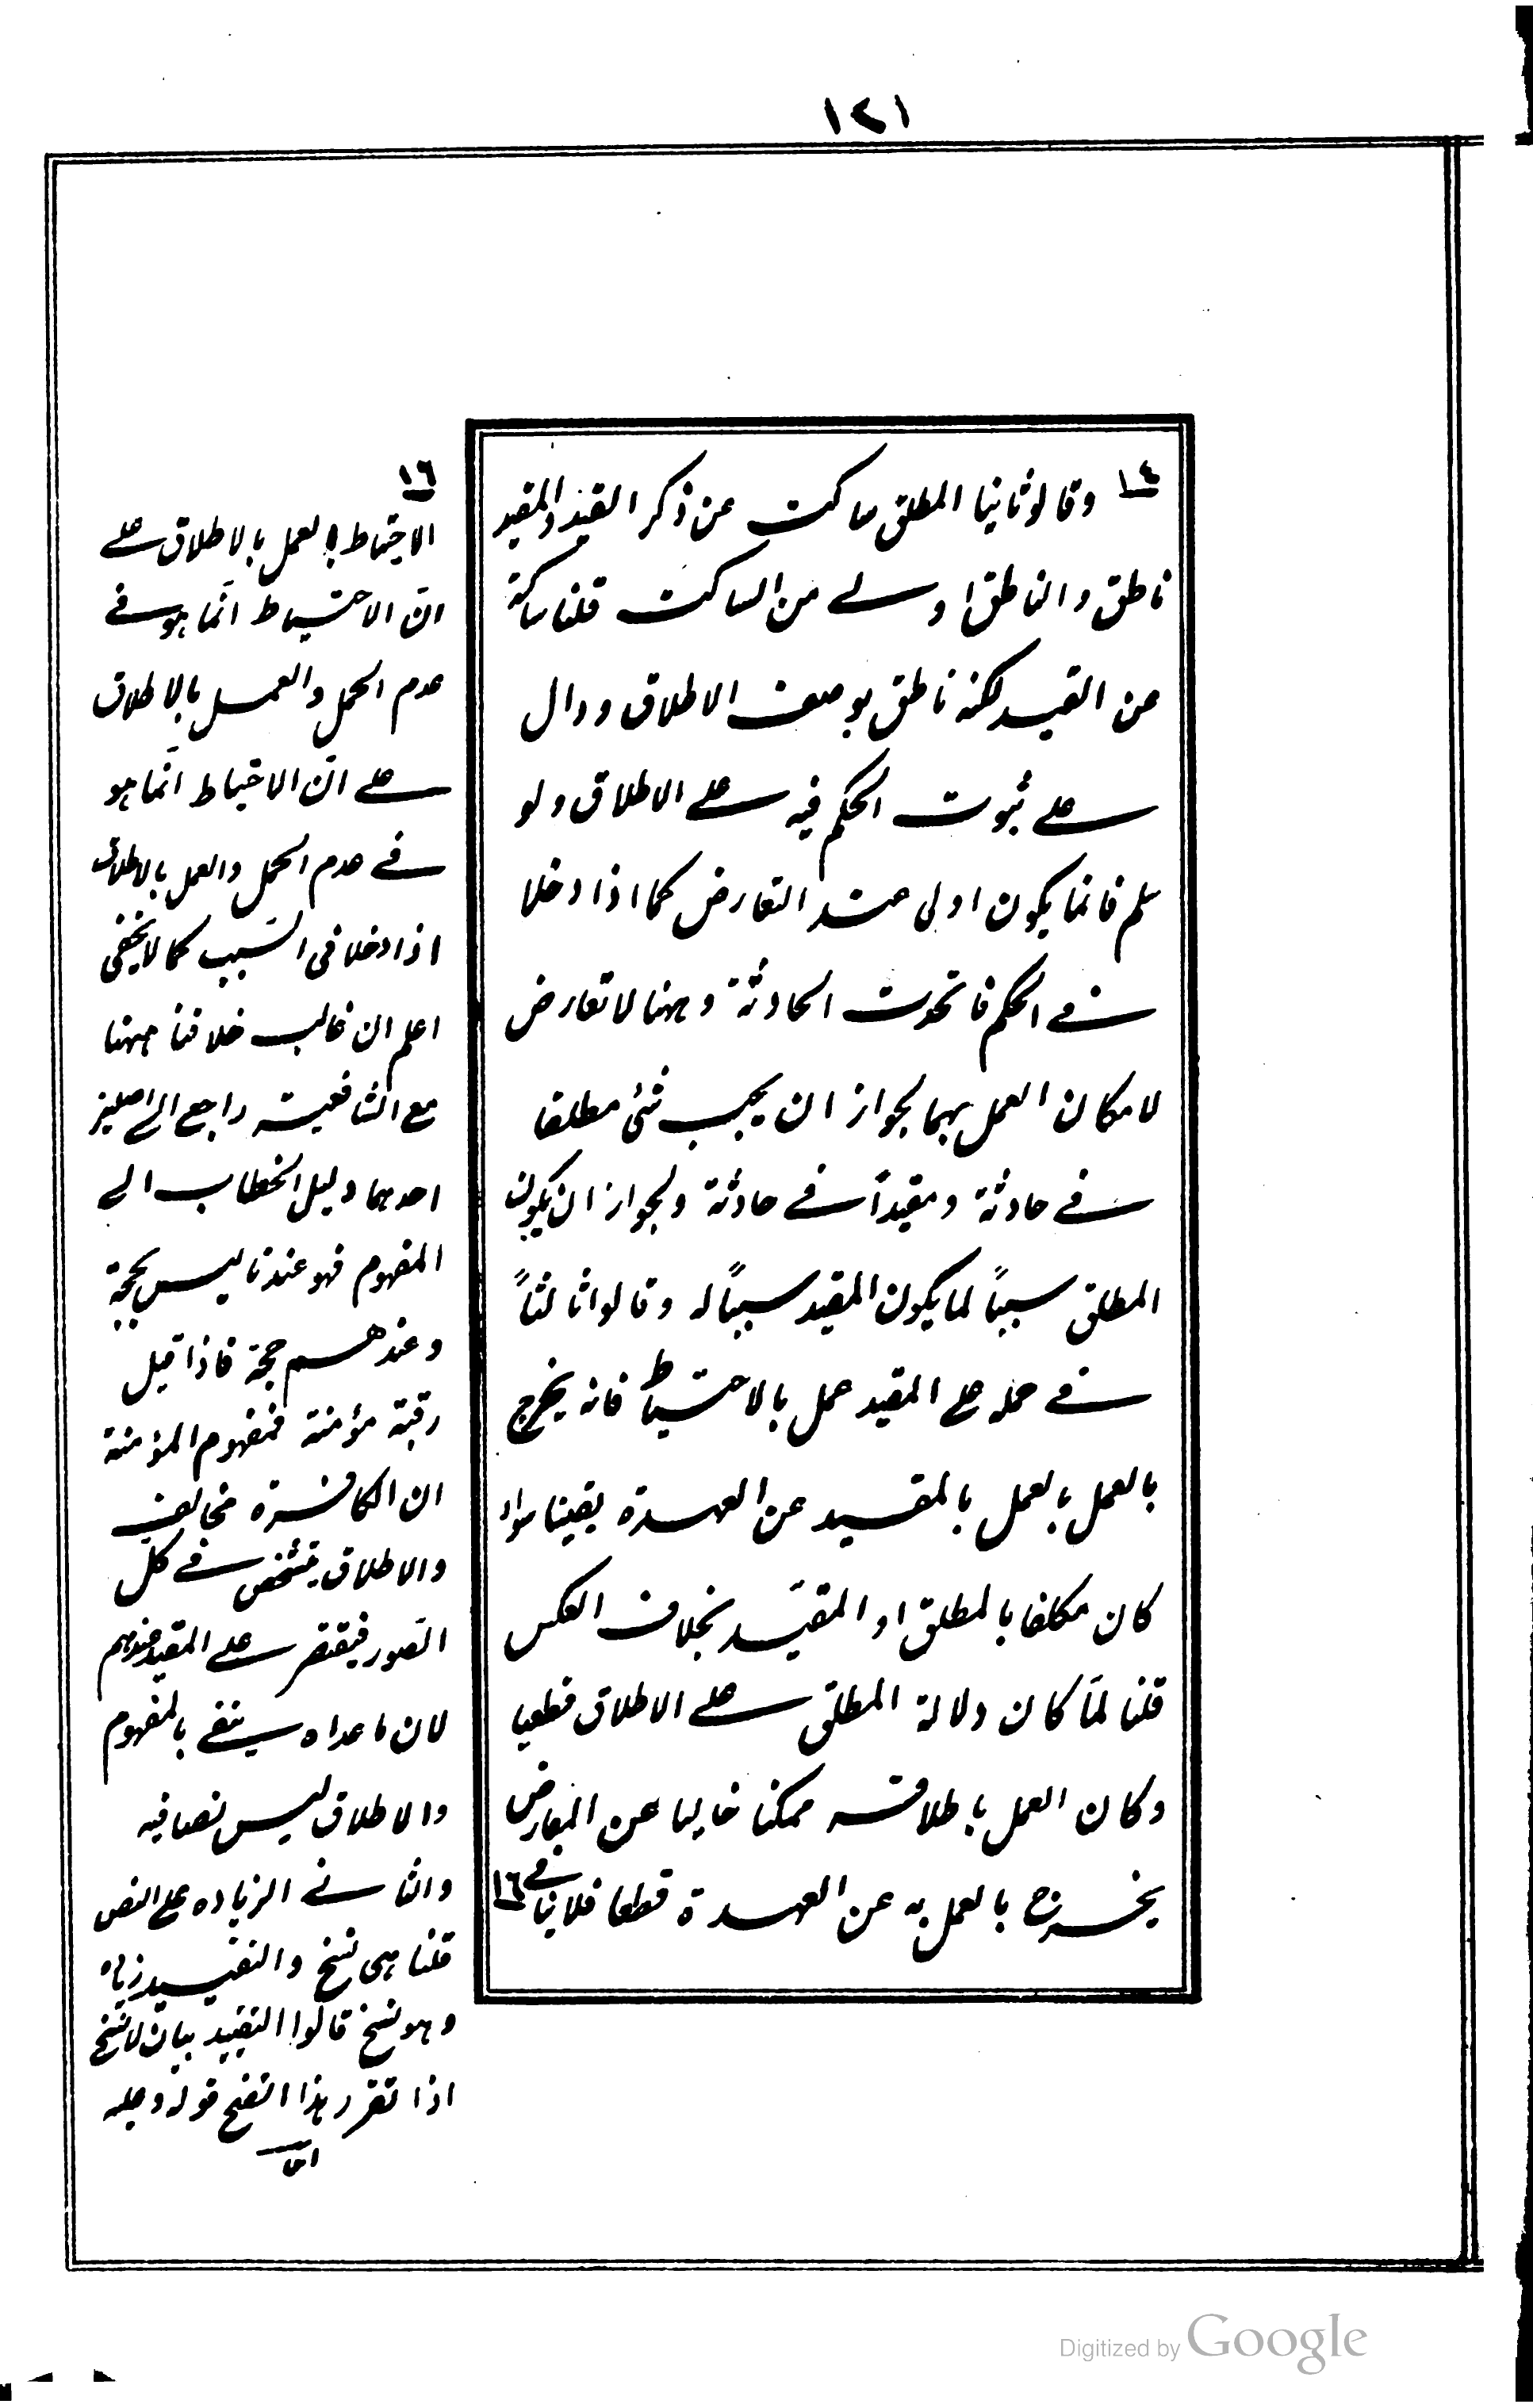 ١٢١
١٤ وقالو ثانيا المطلق ساكت عن ذكر القيد والمقيد
ناطق والناطق اولى من الساكت قلنا ساكتة
عن القيد لكنه ناطق بوصف الاطلاق ودال
على ثبوت الحكم فيه على الاطلاق ولو
سلم فانما يكون اولى عند التعارض كما اذا دخلا
فى الحكم فاتحدت الحادثة وههنا لا تعارض
لامكان العمل بهما لجواز ان يجب شئ مطلقا
فى حادثة ومقيداً فى حادثة ولجواز ان يكون
المطلق سبباً لما يكون المقيد سبباً له وقالوا ثالثاً
فى حمله على المقيد عمل بالاحتياط فانه يخرج
بالعمل بالعمل بالمقيد عن العهدة يقينا سواء
كان مكلفا بالمطلق او المقيّد بخلاف العكس
قلنا لمّا كان دلالة المطلق على الاطلاق قطعيا
وكان العمل باطلاقه ممكنا خاليا عن المعارض
يخرج بالعمل به عن العهدة قطعا فلا ينافى ١٦
١٦
الاحتياط بالعمل بالاطلاق على
انّ الاحتياط انّما هو فى
عدم الحمل والعمل بالاطلاق
على انّ الاحتياط انّما هو
فى عدم الحمل والعمل بالاطلاق
اذا دخلا فى السّبب كما لا يخفى
اعلم ان غالب خلافنا ههنا
مع الشافعية راجع الى اصلين
احدهما دليل الخطاب الى
المفهوم فهو عندنا ليس بحجة
وعندهم حجة فاذا قيل
رقبة مؤمنة فمفهوم المؤمنة
ان الكافرة مخالف
والاطلاق يتشخص فى كل
الصّور فيقتصر على المقيد عندهم
لان ما عداه ينتفى بالمفهوم
والاطلاق ليس نصا فيه
والثانى الزياده على النص
قلنا هى نسخ والتقييد زياده
وهو نسخ قالوا التقييد بيان لا نسخ
اذا تقرر هذا اتضح قوله وحمله
Digitized by Google